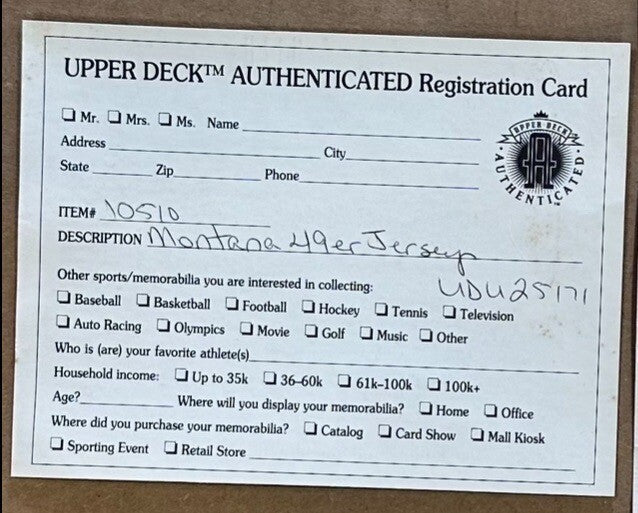 UPPER DECK™ AUTHENTICATED Registration Card
☐ Mr. ☐ Mrs. ☐ Ms. Name
UPPER DECK
AUTHENTICATED
Address City
State Zip Phone
ITEM# 10510
DESCRIPTION Montana 49er Jersey
UDU25171
Other sports/memorabilia you are interested in collecting:
☐ Baseball ☐ Basketball ☐ Football ☐ Hockey ☐ Tennis ☐ Television
☐ Auto Racing ☐ Olympics ☐ Movie ☐ Golf ☐ Music ☐ Other
Who is (are) your favorite athlete(s)
Household income: ☐ Up to 35k ☐ 36–60k ☐ 61k–100k ☐ 100k+
Age? Where will you display your memorabilia? ☐ Home ☐ Office
Where did you purchase your memorabilia? ☐ Catalog ☐ Card Show ☐ Mall Kiosk
☐ Sporting Event ☐ Retail Store